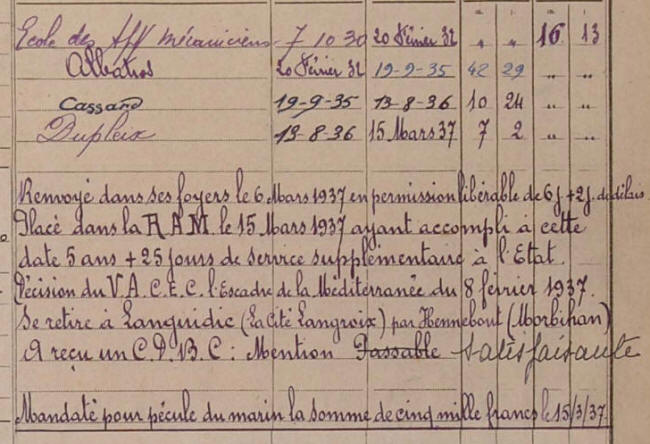 Ecole des Aff Mécaniciens 7 10 30 20 Février 32 " " 16 13
Albatros 20 Février 32 19-9-35 42 29 " "
Cassard 19-9-35 13-8-36 10 24 " "
Dupleix 13-8-36 15 Mars 37 7 2 " "
Renvoyé dans ses foyers le 6 Mars 1937 en permission libérable de 6 j + 2 j. de délais
Placé dans la R A M. le 15 Mars 1937 ayant accompli à cette
date 5 ans + 25 jours de service supplémentaire à l'Etat.
Décision du V.A.C.E.C. l'Escadre de la Méditerranée du 8 février 1937.
Se retire à Languidic (La Cité Langroix) par Hennebont (Morbihan)
A reçu un C.D.B.C : Mention Passable satisfaisante
Mandaté pour pécule du marin la somme de cinq mille francs le 15/3/37.